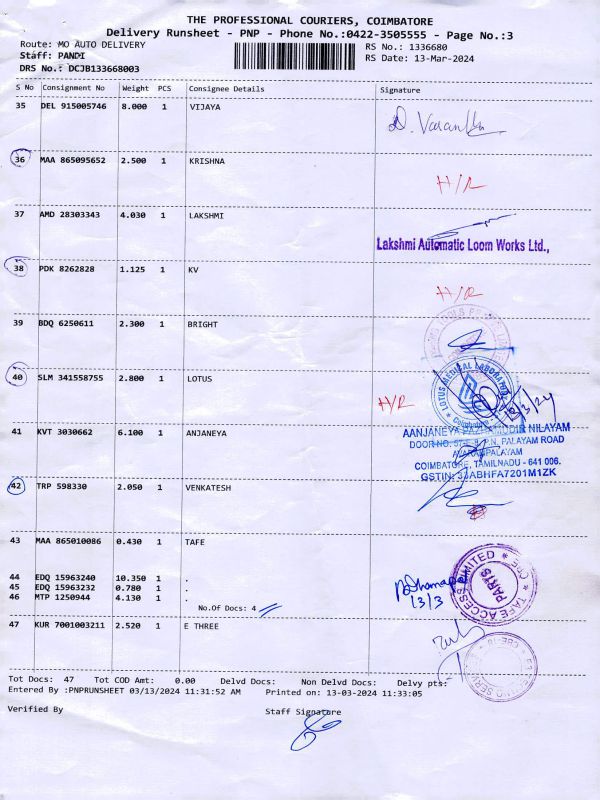 THE PROFESSIONAL COURIERS, COIMBATORE
Delivery Runsheet - PNP - Phone No.:0422-3505555 - Page No.:3
Route: MO AUTO DELIVERY RS No.: 1336680
Staff: PANDI RS Date: 13-Mar-2024
DRS No.: DCJB133668003
S No Consignment No Weight PCS Consignee Details Signature
35 DEL 915005746 8.000 1 VIJAYA
36 MAA 865095652 2.500 1 KRISHNA
H/R
37 AMD 28303343 4.030 1 LAKSHMI
Lakshmi Automatic Loom Works Ltd.,
38 PDK 8262828 1.125 1 KV
H/R
39 BDQ 6250611 2.300 1 BRIGHT
40 SLM 341558755 2.800 1 LOTUS
LOTUS MEDICAL LABORATORY
Coimbatore
H/R
41 KVT 3030662 6.100 1 ANJANEYA
AANJANEYA PAZHAMUDIR NILAYAM
DOOR NO. P.N. PALAYAM ROAD
AVARAMPALAYAM
COIMBATORE, TAMILNADU - 641 006.
GSTIN: 33ABHFA7201M1ZK
42 TRP 598330 2.050 1 VENKATESH
43 MAA 865010086 0.430 1 TAFE
TAFE ACCESS LIMITED
PARTS
CBE
13/3
44 EDQ 15963240 10.350 1 .
45 EDQ 15963232 0.780 1 .
46 MTP 1250944 4.130 1 .
No.Of Docs: 4
47 KUR 7001003211 2.520 1 E THREE
Tot Docs: 47 Tot COD Amt: 0.00 Delvd Docs: Non Delvd Docs: Delvy pts:
Entered By :PNPRUNSHEET 03/13/2024 11:31:52 AM Printed on: 13-03-2024 11:33:05
Verified By Staff Signature